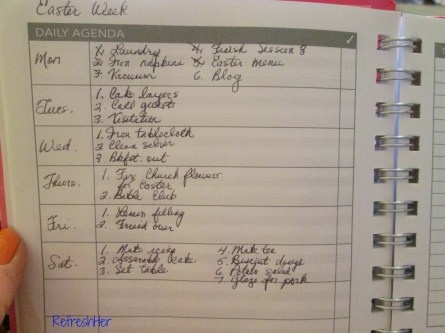 Easter Week
DAILY AGENDA ✓
Mon
1. Laundry
2. Iron napkins
3. Vacuum
4. Finish Session 8
5. Easter menu
6. Blog
Tues.
1. Cake layers
2. Call guests
3. Visitation
Wed.
1. Iron tablecloth
2 Clean silver
3 Bkfst. out
Thurs.
1. Fix Church flowers
for Easter
2. Bible Club
Fri.
1. Lemon filling
2. Friend over
Sat.
1. Make icing
2. Assemble cake
3. Set table
4. Make tea
5. Biscuit dough
6. Potato salad
7. Glaze for pork
RefreshHer